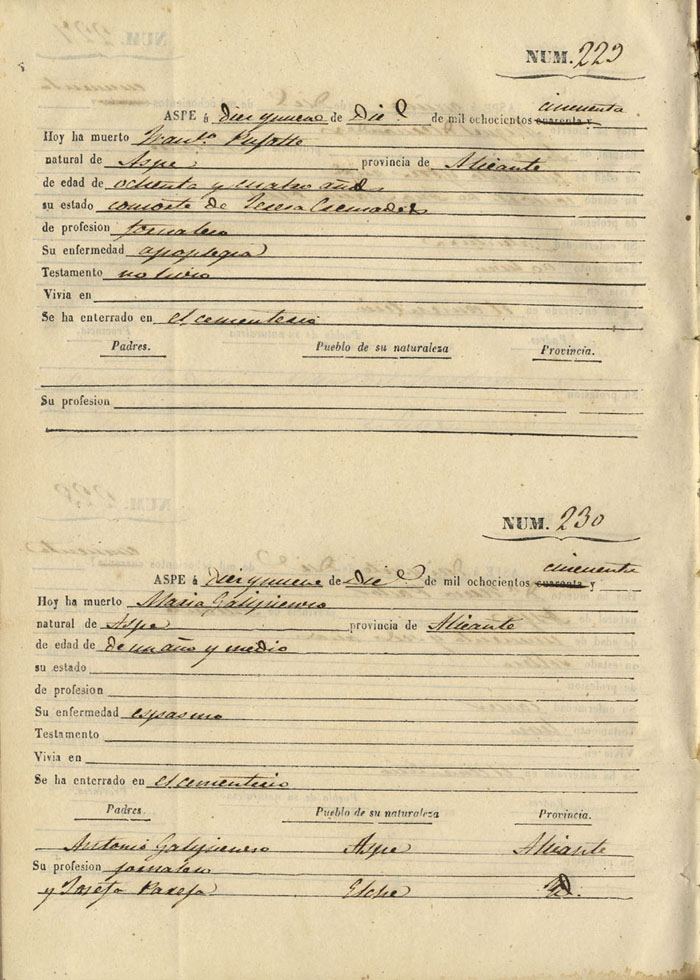 NUM. 229
cincuenta
ASPE á diez y nueve de Dic.e de mil ochocientos cuarenta y
Hoy ha muerto Fran.co
natural de Aspe provincia de Alicante
de edad de ochenta y cuatro años
su estado consorte de Teresa Cremades
de profesion jornalero
Su enfermedad apoplegia
Testamento no hizo
Vivia en
Se ha enterrado en el cementerio
Padres. Pueblo de su naturaleza Provincia.
Su profesion
NUM. 230
cincuenta
ASPE á diez y nueve de Dic.e de mil ochocientos cuarenta y
Hoy ha muerto Maria Galipienso
natural de Aspe provincia de Alicante
de edad de de un año y medio
su estado
de profesion
Su enfermedad espasmo
Testamento
Vivia en
Se ha enterrado en el cementerio
Padres. Pueblo de su naturaleza Provincia.
Antonio Galipienso Aspe Alicante
Su profesion jornalero
y Josefa Pareja Elche Yd.